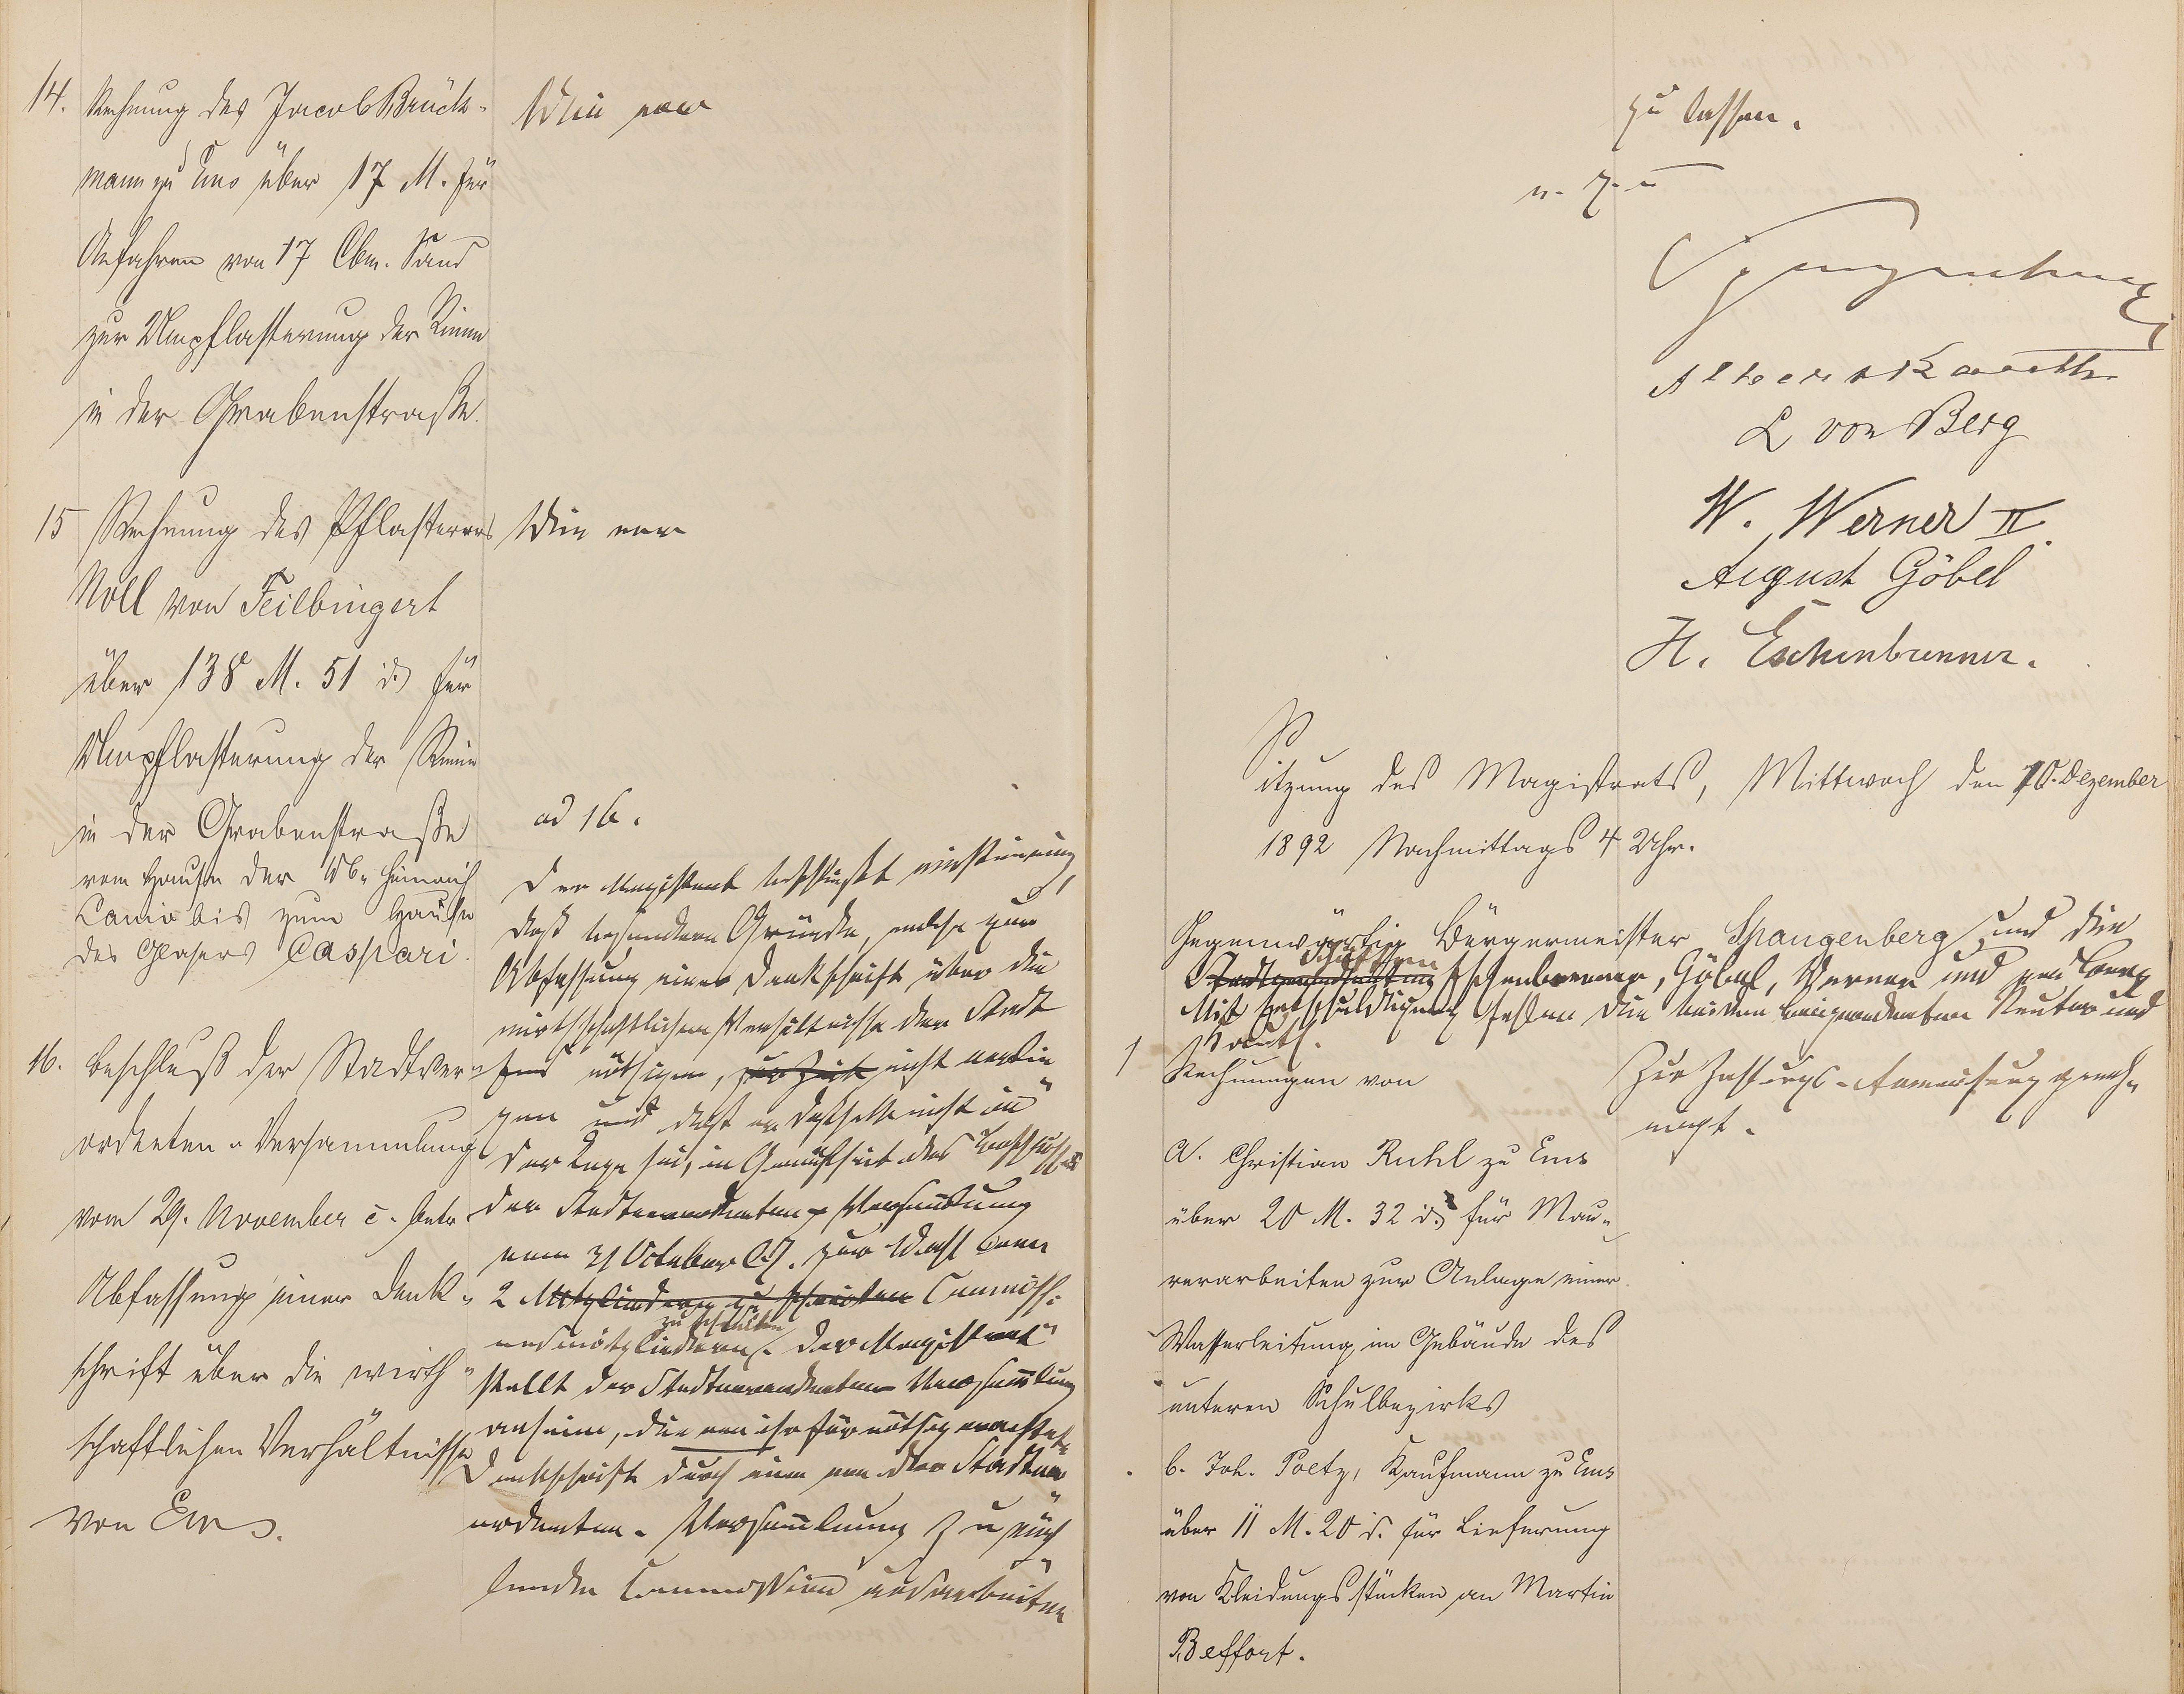 14. Rechnung des Jacob Brück-
mann zu Ems über 17 M. für
Anfahren von 17 Cbm. Sand
zur Umpflasterung der Rinne
in der Grabenstraße.
Wie vor
15 Rechnung des Pflasterers
Noll von Feilbingert
über 138 M. 51 d. für
Umpflasterung der Rinne
in der Grabenstraße
vom Hause der Wb. Heinrich
bis zum Hause
des Glasers Caspari.
Wie vor
16. Beschluß der Stadtver-
ordneten-Versammlung
vom 29. November c. betr.
Abfassung einer Denk-
schrift über die wirth-
schaftlichen Verhältnisse
von Ems.
ad 16.
Der Magistrat beschließt einstimmig,
daß besondere Gründe, welche zur
Abfassung einer Denkschrift über die
wirthschaftlichen Verhältnisse der Stadt
Ems nöthigen, zur Zeit nicht vorlie-
gen und daß er deßhalb nicht in
der Lage sei, in Gemäßheit des Beschlusses
der Stadtverordneten-Versammlung
vom 31 October l. J. zur Wahl von
2 Mitgliedern zu schreiten Commissi-
onsmitgliedern zu schreiten. Der Magistrat
stellt der Stadtverordneten-Versammlung
anheim, die von ihr für nöthig erachtete
Denkschrift durch eine von der Stadtver-
ordneten-Versammlung zu wäh-
lenden Commission ausarbeiten
zu lassen.
v. g. u.
Spangenberg
Albert Kauth
L von Berg
W. Werner II.
August Göbel
H. Eschenbrenner.
Sitzung des Magistrats, Mittwoch den 10. Dezember
1892 Nachmittags 4 Uhr.
Gegenwärtig Bürgermeister Spangenberg und die
Schöffen Eschenbrenner, Göbel, Werner und von Berg
Mit Entschuldigung fehlen die beiden Beigeordneten Reuter und
Kauth.
1 Rechnungen von
a. Christian Ruhl zu Ems
über 20 M. 32 d. für Mau-
rerarbeiten zur Anlage einer
Wasserleitung im Gebäude des
unteren Schulbezirks
b. Joh. Poetz, Kaufmann zu Ems
über 11 M. 20 d. für Lieferung
von Kleidungsstücken an Martin
Beffort.
Zur Zahlungs-Anweisung geneh-
migt.